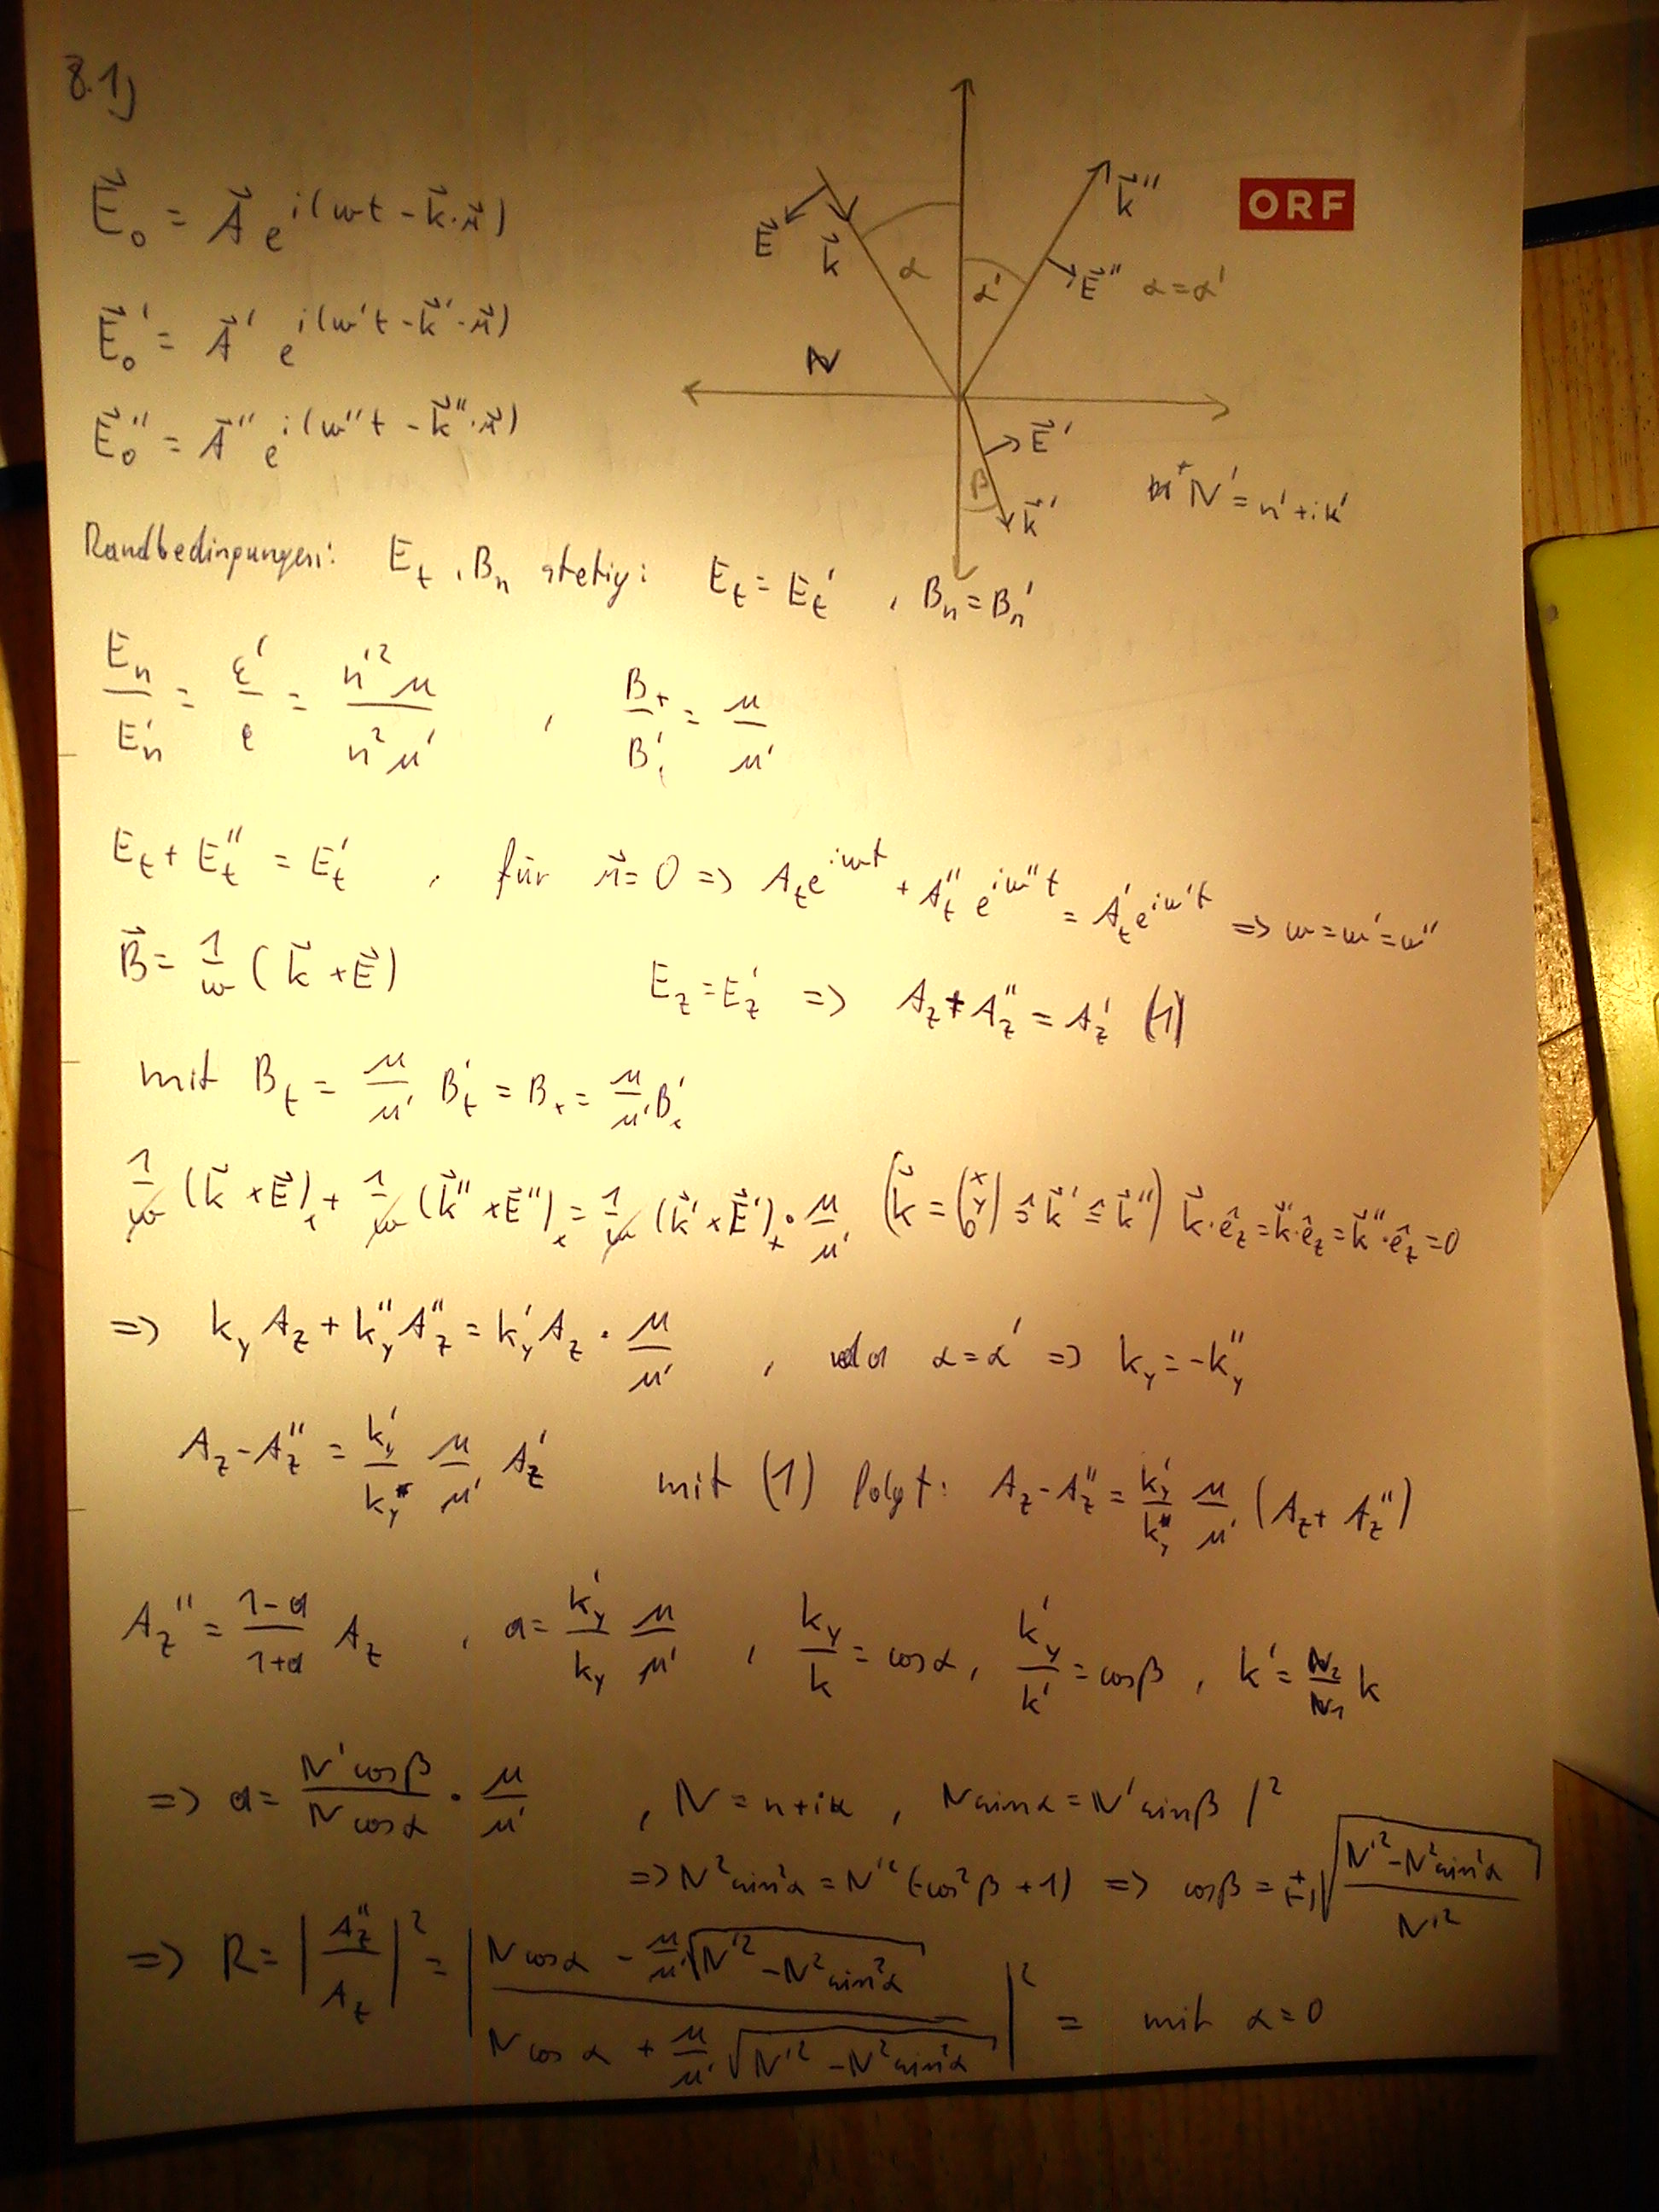 8.1)
ORF
E⃗₀ = A⃗ e^{i(ωt - k⃗·r⃗)}
E⃗₀' = A⃗' e^{i(ω't - k⃗'·r⃗)}
E⃗₀'' = A⃗'' e^{i(ω''t - k⃗''·r⃗)}
E⃗ k⃗ α α' k⃗'' E⃗'' α=α'
N
E⃗' β k⃗' N' = n'+ik'
Randbedingungen: E_t, B_n stetig: E_t = E_t' , B_n = B_n'
E_n/E_n' = ε'/ε = n'²μ/n²μ' , B_t/B_t' = μ/μ'
E_t + E_t'' = E_t' , für r⃗=0 => A_t e^{iωt} + A_t'' e^{iω''t} = A_t' e^{iω't} => ω=ω'=ω''
B⃗ = 1/ω (k⃗ × E⃗) E_z = E_z' => A_z + A_z'' = A_z' (1)
mit B_t = μ/μ' B_t' = B_x = μ/μ' B_x'
1/ω (k⃗ × E⃗)_x + 1/ω (k⃗'' × E⃗'')_x = 1/ω (k⃗' × E⃗')_x · μ/μ' (k⃗ = (x y 0) ≙ k⃗' ≙ k⃗'') k⃗·ê_z = k⃗'·ê_z = k⃗''·ê_z = 0
=> k_y A_z + k_y'' A_z'' = k_y' A_z · μ/μ' , da α=α' => k_y = -k_y''
A_z - A_z'' = k_y'/k_y μ/μ' A_z' mit (1) folgt: A_z - A_z'' = k_y'/k_y μ/μ' (A_z + A_z'')
A_z'' = (1-a)/(1+a) A_z , a = k_y'/k_y μ/μ' , k_y/k = cosα, k_y'/k' = cosβ , k' = N₂/N₁ k
=> a = N'cosβ/N cosα · μ/μ' , N = n+ik , N sinα = N' sinβ |²
=> N² sin²α = N'² (-cos²β + 1) => cosβ = +(-)√((N'² - N² sin²α)/N'²)
=> R = |A_z''/A_z|² = |(N cosα - μ/μ' √(N'² - N² sin²α))/(N cosα + μ/μ' √(N'² - N² sin²α))|² = mit α=0